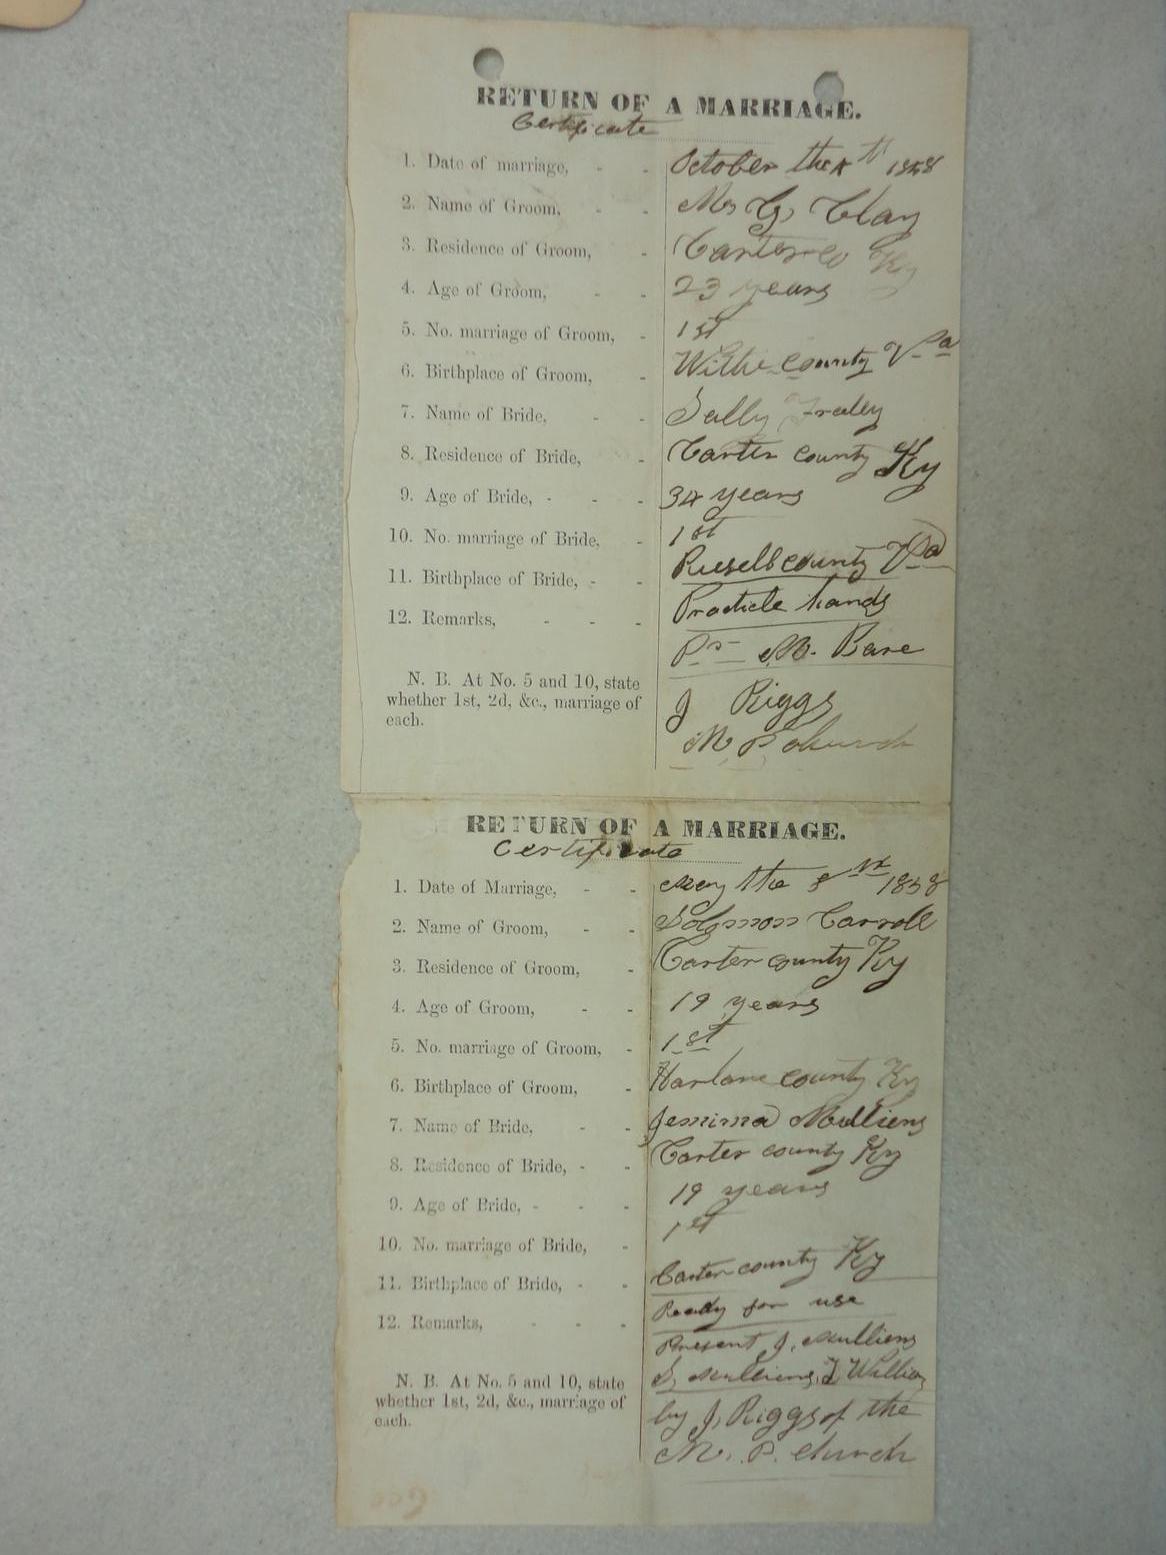 RETURN OF A MARRIAGE.
Certificate
1. Date of marriage, - - October the th 1858
2. Name of Groom, - - G, Clay
3. Residence of Groom, - Carter co Ky
4. Age of Groom, - - 23 years
5. No. marriage of Groom, - 1st
6. Birthplace of Groom, - Withe county Va
7. Name of Bride, - - Sally Fraley
8. Residence of Bride, - Carter county Ky
9. Age of Bride, - - - 34 years
10. No. marriage of Bride, - 1st
11. Birthplace of Bride, - - Rusell county Va
12. Remarks, - - - Practicle hands
M. Bare
N. B. At No. 5 and 10, state
whether 1st, 2d, &c., marriage of
each.
J Riggs
M P church
RETURN OF A MARRIAGE.
Certificate
1. Date of Marriage, - - May the 8 1858
2. Name of Groom, - - Solomon Carroll
3. Residence of Groom, - Carter county Ky
4. Age of Groom, - - 19 years
5. No. marriage of Groom, - 1st
6. Birthplace of Groom, - Harlane county Ky
7. Name of Bride, - - Jemima Mulliens
8. Residence of Bride, - - Carter county Ky
9. Age of Bride, - - - 19 years
10. No. marriage of Bride, - 1st
11. Birthplace of Bride, - - Carter county Ky
12. Remarks, - - - Ready for use
Present J. Mulliens
S, Mulliens,
N. B. At No. 5 and 10, state
whether 1st, 2d, &c., marriage of
each.
by J, Riggs of the
M. P. church